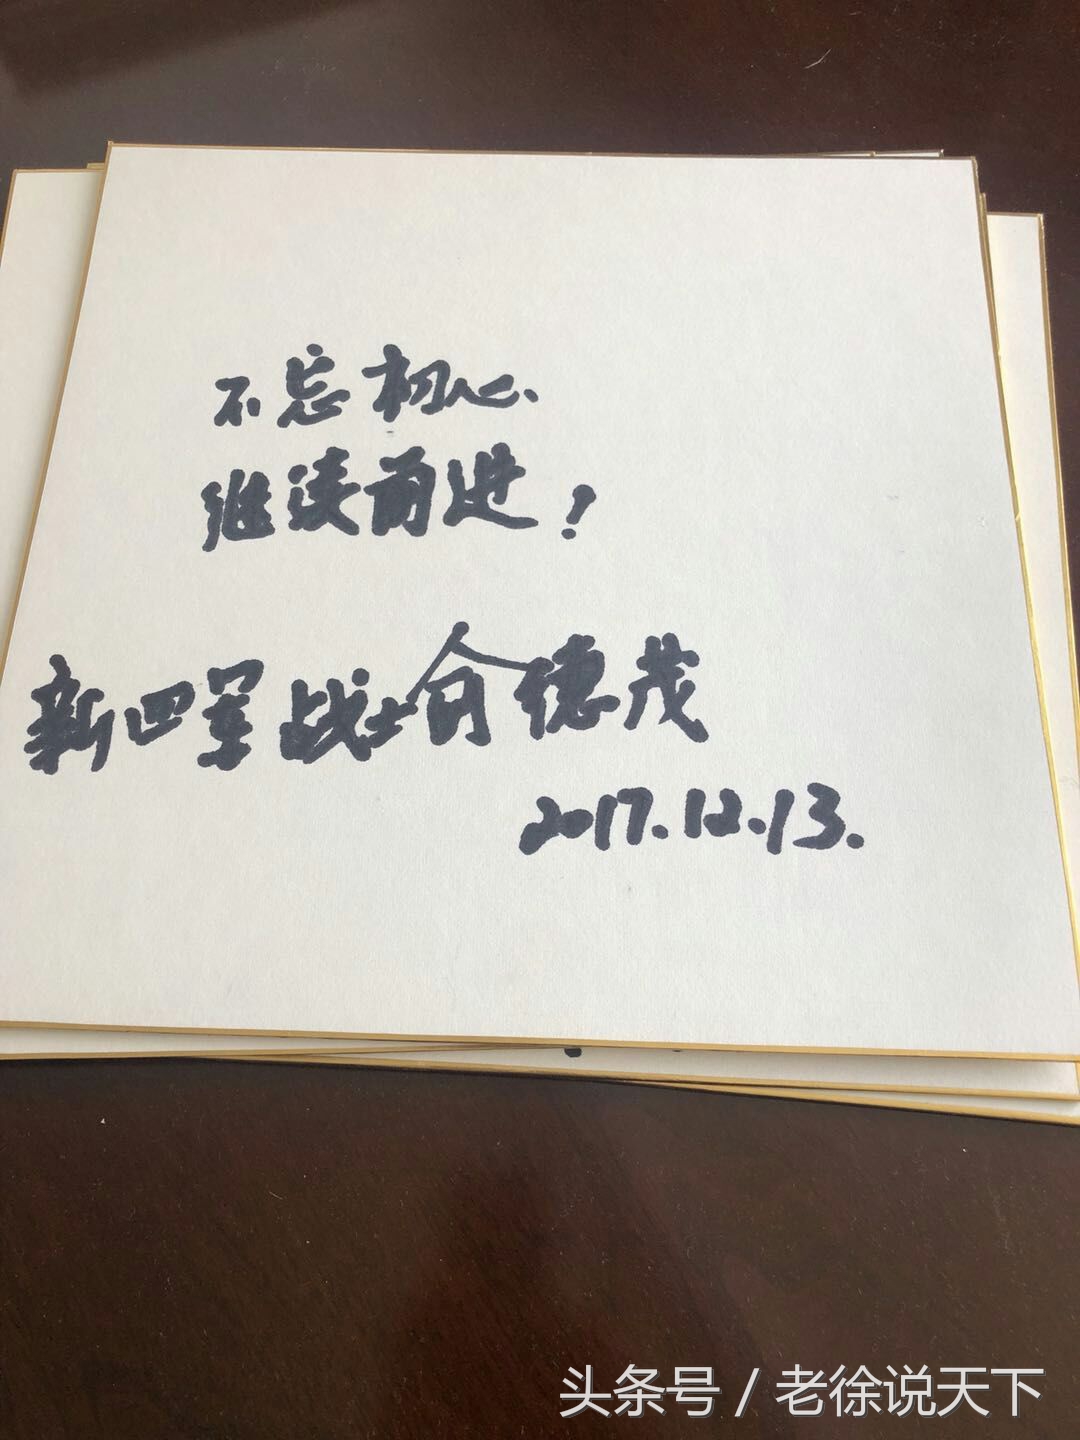 不忘初心
继续前进！
新四军战士俞德茂
2017.12.13.
头条号 / 老徐说天下